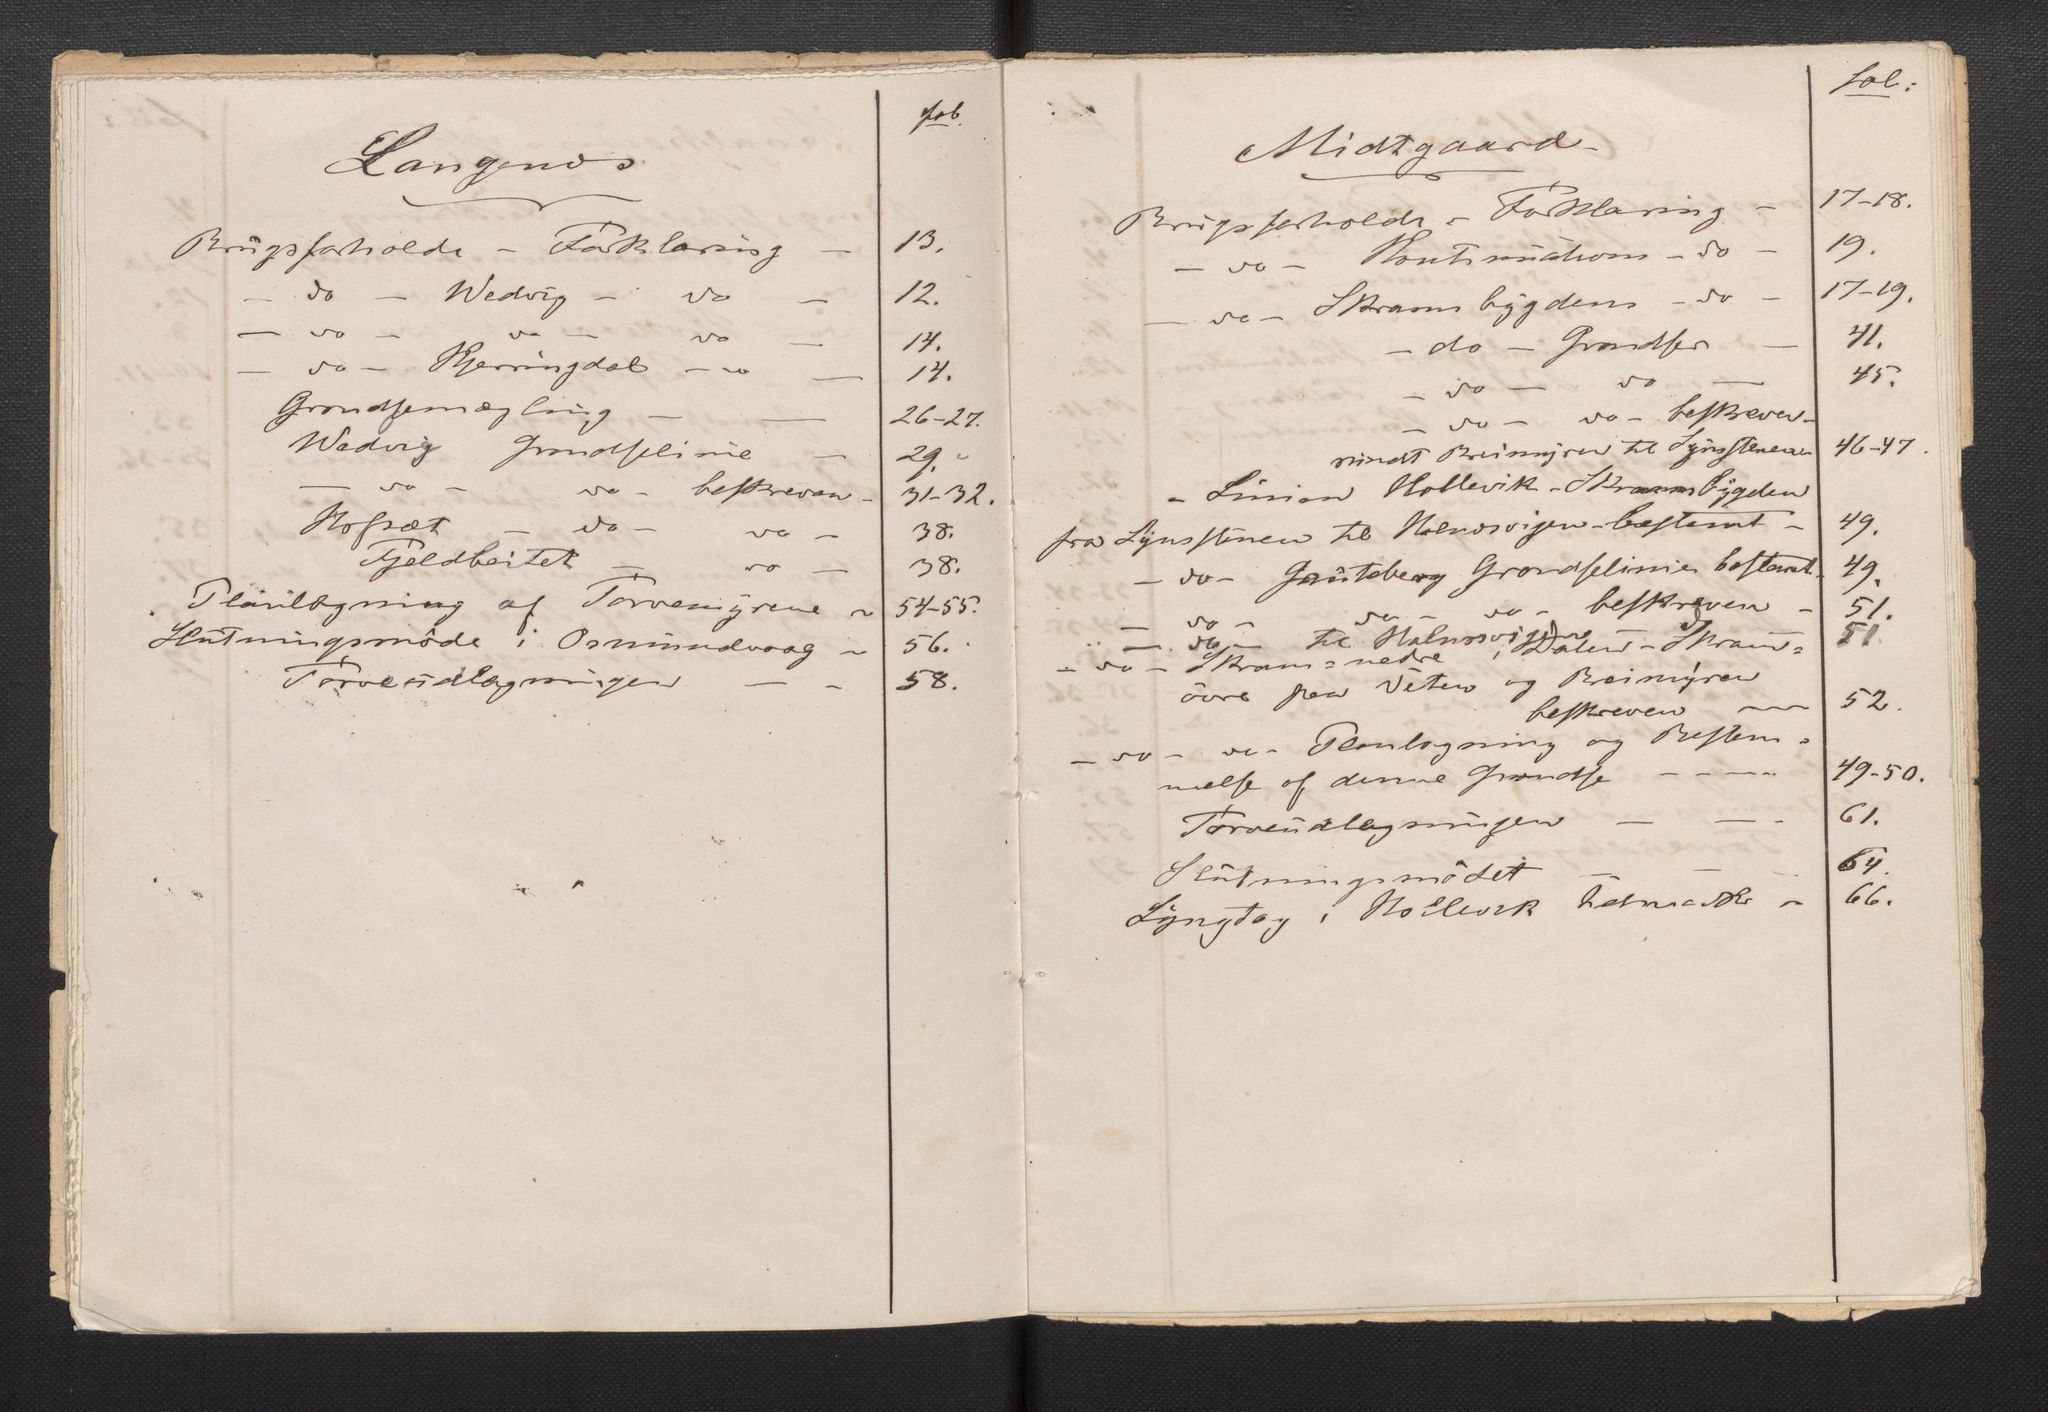 fol.
Langenes
Brügsforholds - Forklaring - 13.
- do - Wedvig - do - 12.
- do - do - do - 14.
- do - Kjerringdal - do - 14.
Grændsemægling - - 26-27.
Wedvig Grændselinie - 29.
- do - do - beskreven - 31-32.
Hofsæt - do - do - 38.
Fjeldbeitet - do - 38.
Planlægning af Torvemyrene - 54-55.
Slutningsmöde i Osmundvaag - 56.
Torveüdlægningen - - 58.
fol:
Midtgaard -
Brügsforholds - Forklaring - 17-18.
- do - Kontinuations - do - 19.
- do - Skramsbygdens - do - 17-19.
- do - Grændser - 41.
- do - do - 45.
- do - do - beskreven -
rundt Breimyren til Lynsstenen 46-47.
- Linien Hollevik - Skramsbygden
fra Lynsstenen til Holmsvigen - bestemt - 49.
- do - Gauteberg Grændselinie bestemt - 49.
- do - do - do - beskreven - 51.
- do - til Holmsvigen i Dalen - Skram= 51.
- do - Skram = nedre
övre paa Veten og Breimyren
beskreven - 52.
- do - do - Planlægning og Bestem=
melse af denne Grændse - - - 49-50.
Torveüdlægningen - - - 61.
Slütningsmödet - - 64.
Lyngtag i Hollevik Udmark - 66.